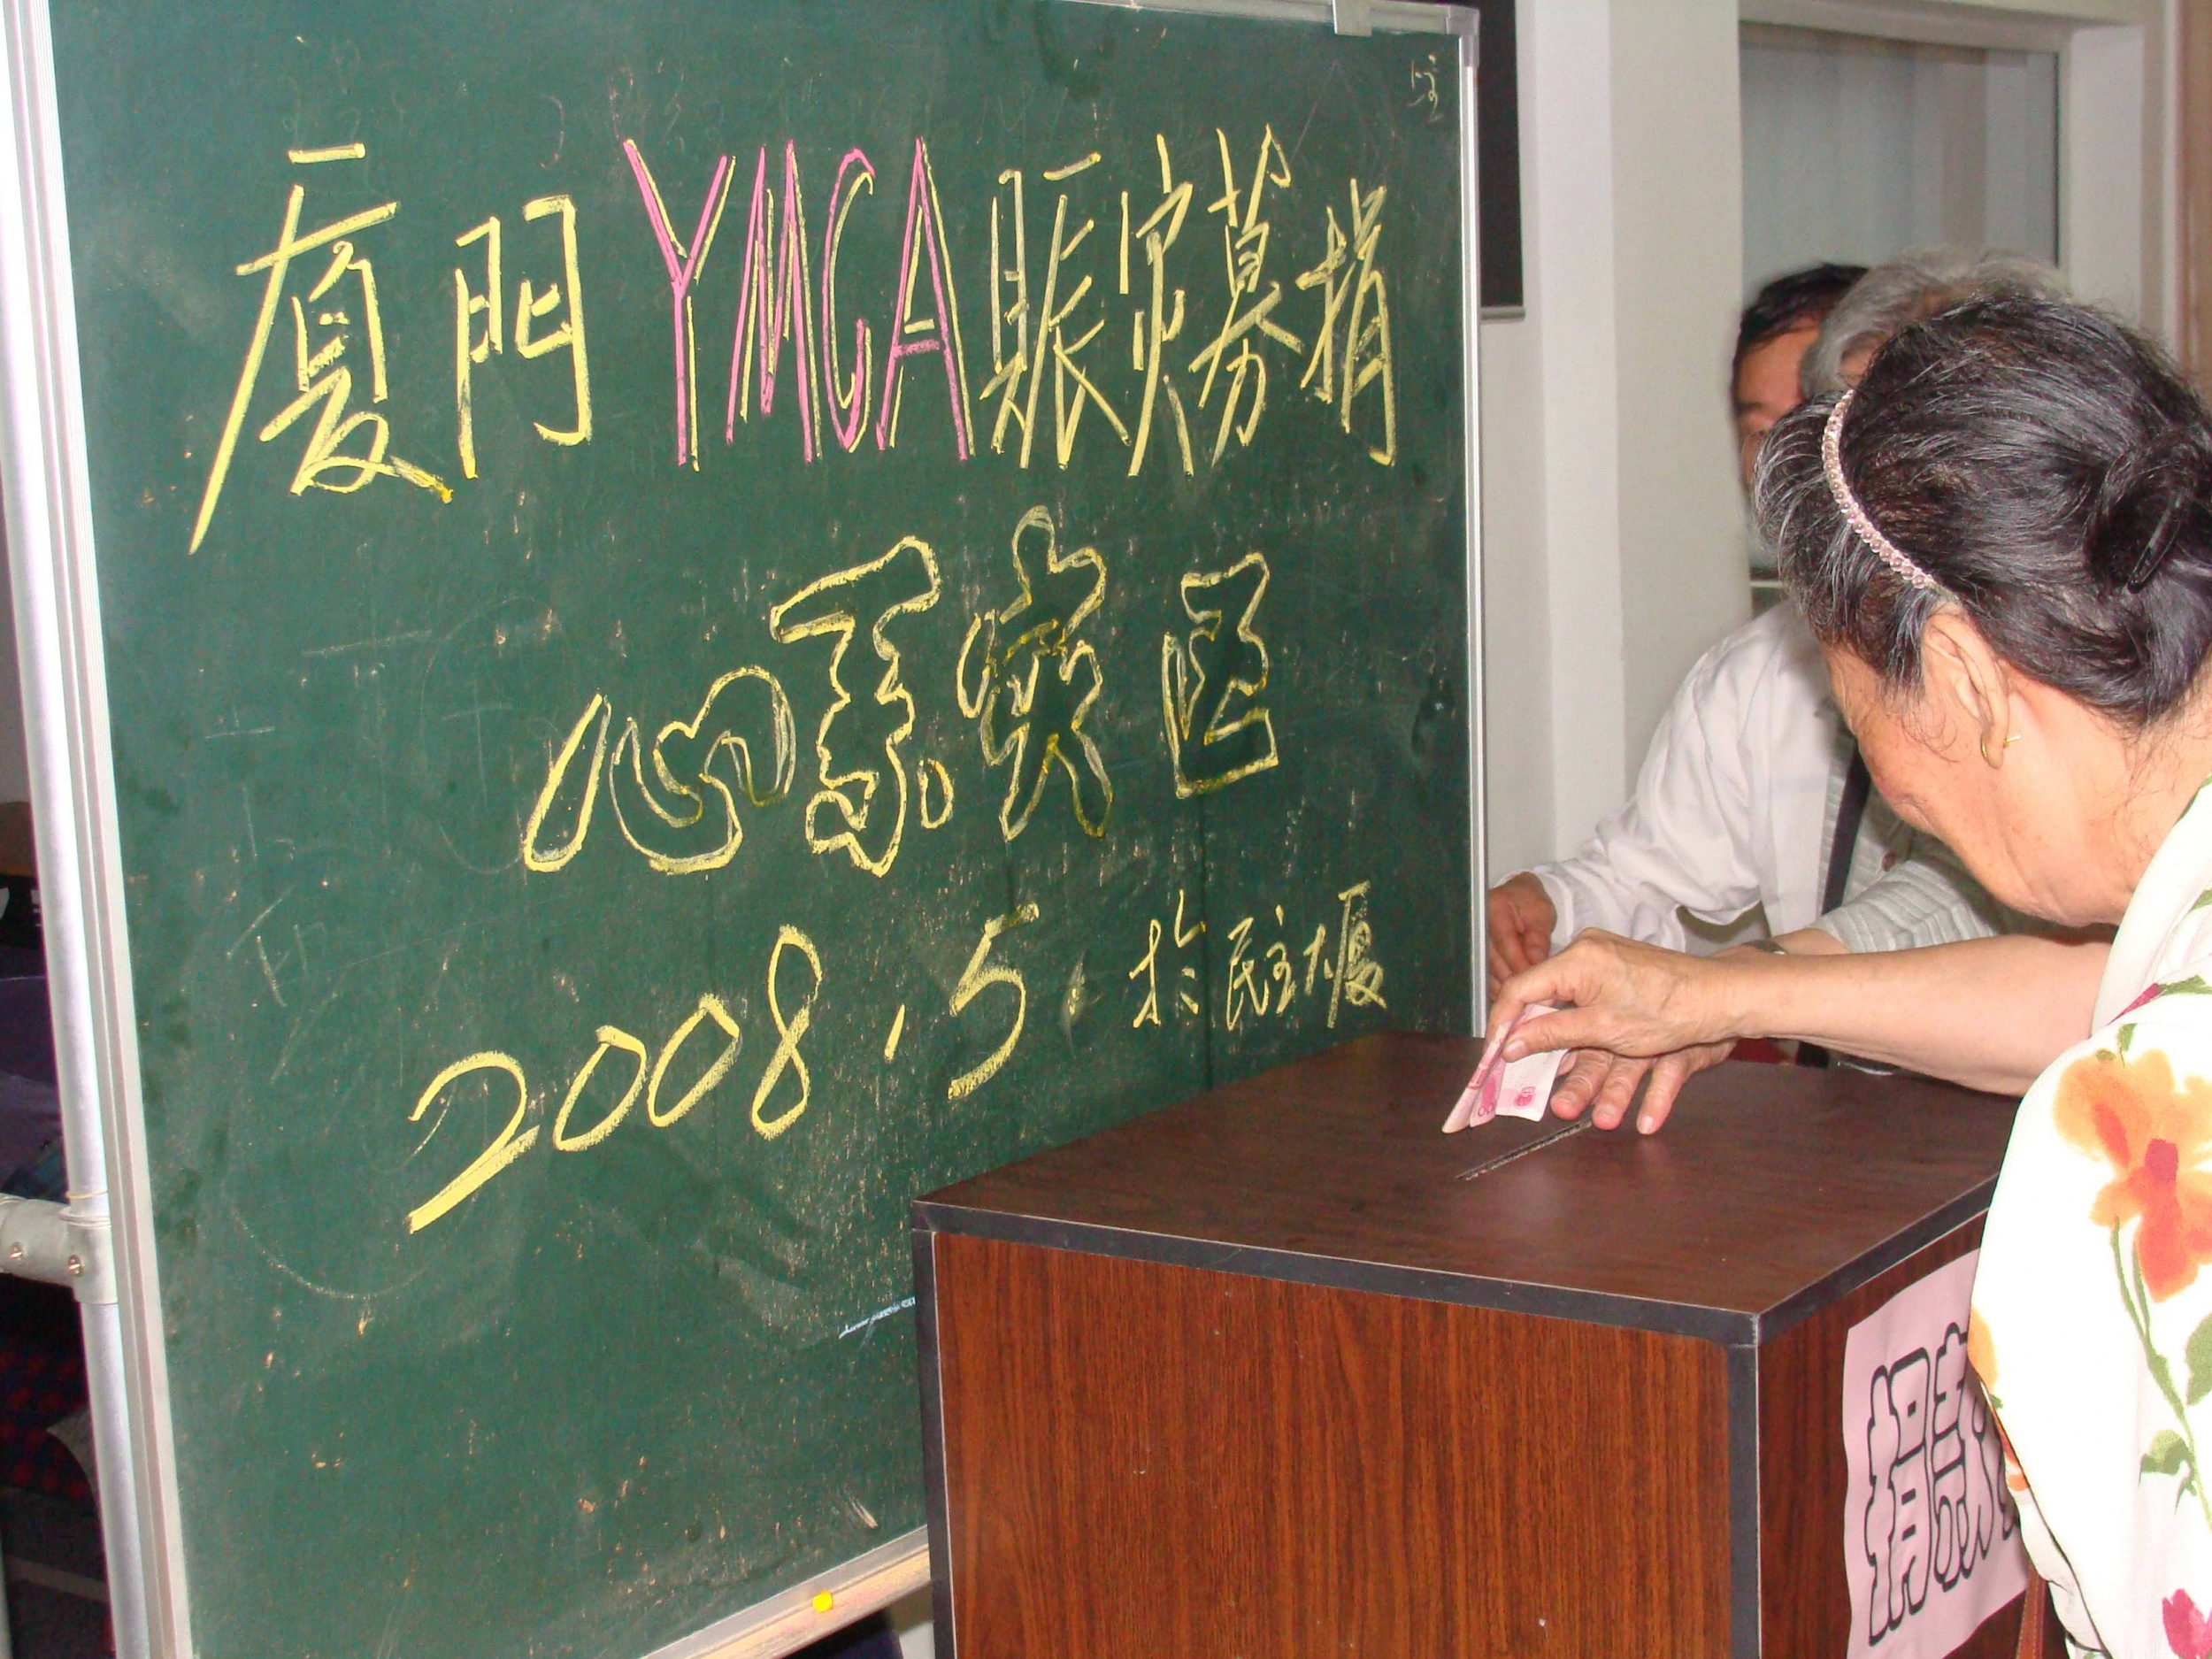 厦門YMCA賑灾募捐
心系灾区
2008.5.於民主大厦
捐款